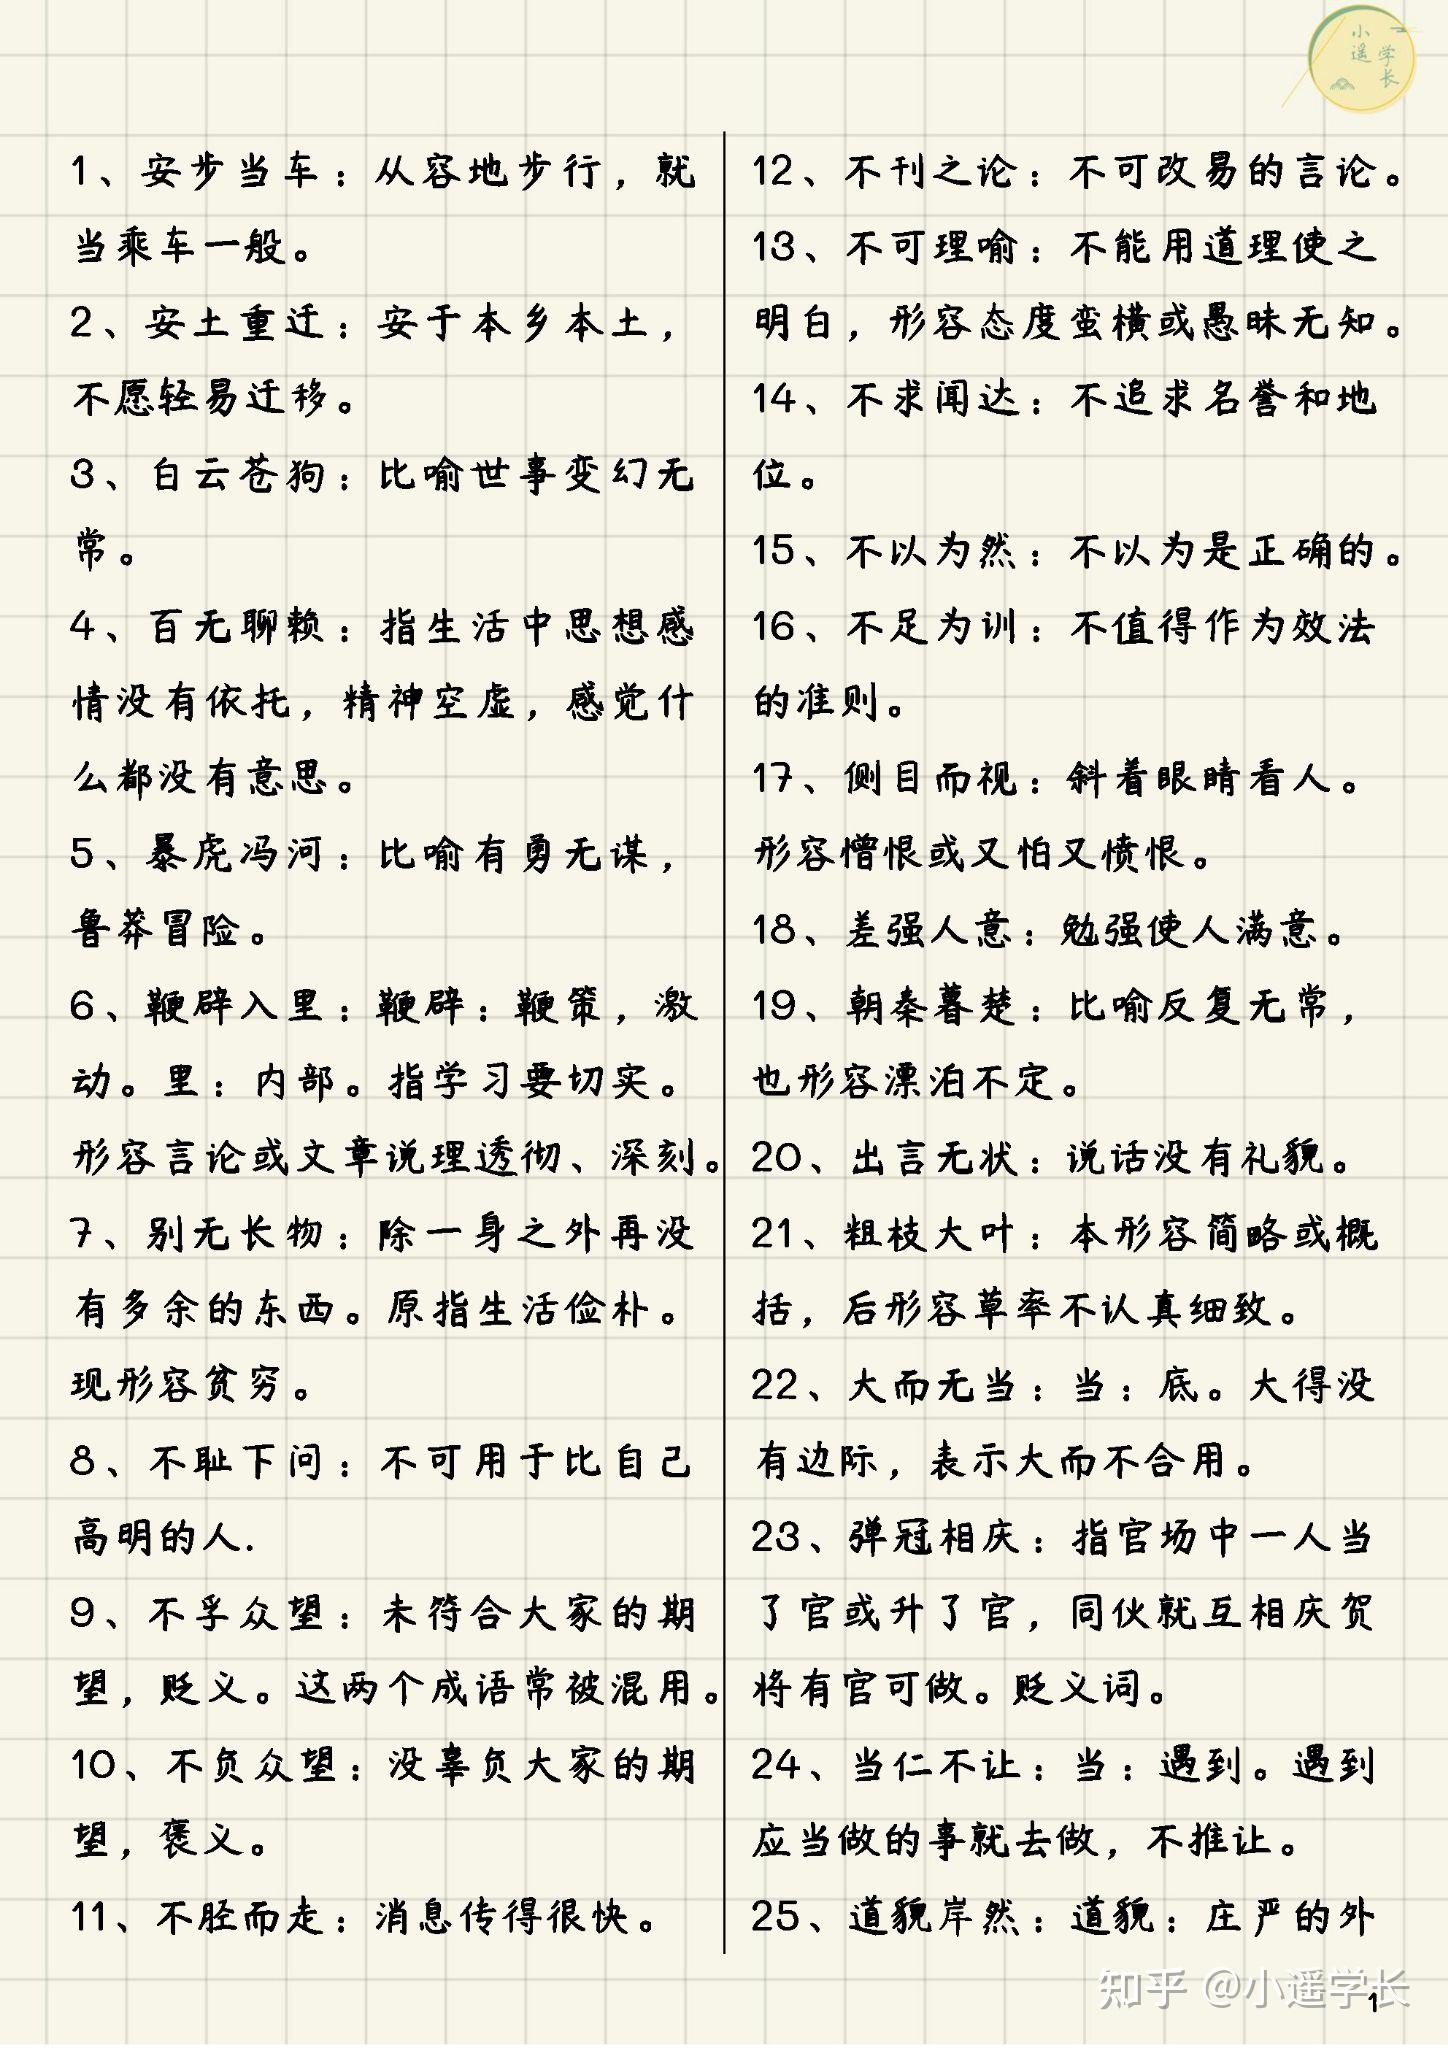 小遥学长
1、安步当车：从容地步行，就
当乘车一般。
2、安土重迁：安于本乡本土，
不愿轻易迁移。
3、白云苍狗：比喻世事变幻无
常。
4、百无聊赖：指生活中思想感
情没有依托，精神空虚，感觉什
么都没有意思。
5、暴虎冯河：比喻有勇无谋，
鲁莽冒险。
6、鞭辟入里：鞭辟：鞭策，激
动。里：内部。指学习要切实。
形容言论或文章说理透彻、深刻。
7、别无长物：除一身之外再没
有多余的东西。原指生活俭朴。
现形容贫穷。
8、不耻下问：不可用于比自己
高明的人.
9、不孚众望：未符合大家的期
望，贬义。这两个成语常被混用。
10、不负众望：没辜负大家的期
望，褒义。
11、不胫而走：消息传得很快。
12、不刊之论：不可改易的言论。
13、不可理喻：不能用道理使之
明白，形容态度蛮横或愚昧无知。
14、不求闻达：不追求名誉和地
位。
15、不以为然：不以为是正确的。
16、不足为训：不值得作为效法
的准则。
17、侧目而视：斜着眼睛看人。
形容憎恨或又怕又愤恨。
18、差强人意：勉强使人满意。
19、朝秦暮楚：比喻反复无常，
也形容漂泊不定。
20、出言无状：说话没有礼貌。
21、粗枝大叶：本形容简略或概
括，后形容草率不认真细致。
22、大而无当：当：底。大得没
有边际，表示大而不合用。
23、弹冠相庆：指官场中一人当
了官或升了官，同伙就互相庆贺
将有官可做。贬义词。
24、当仁不让：当：遇到。遇到
应当做的事就去做，不推让。
25、道貌岸然：道貌：庄严的外
知乎 @小遥学长
1